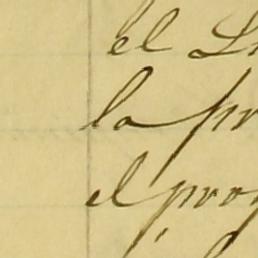 el
la pr
el prop